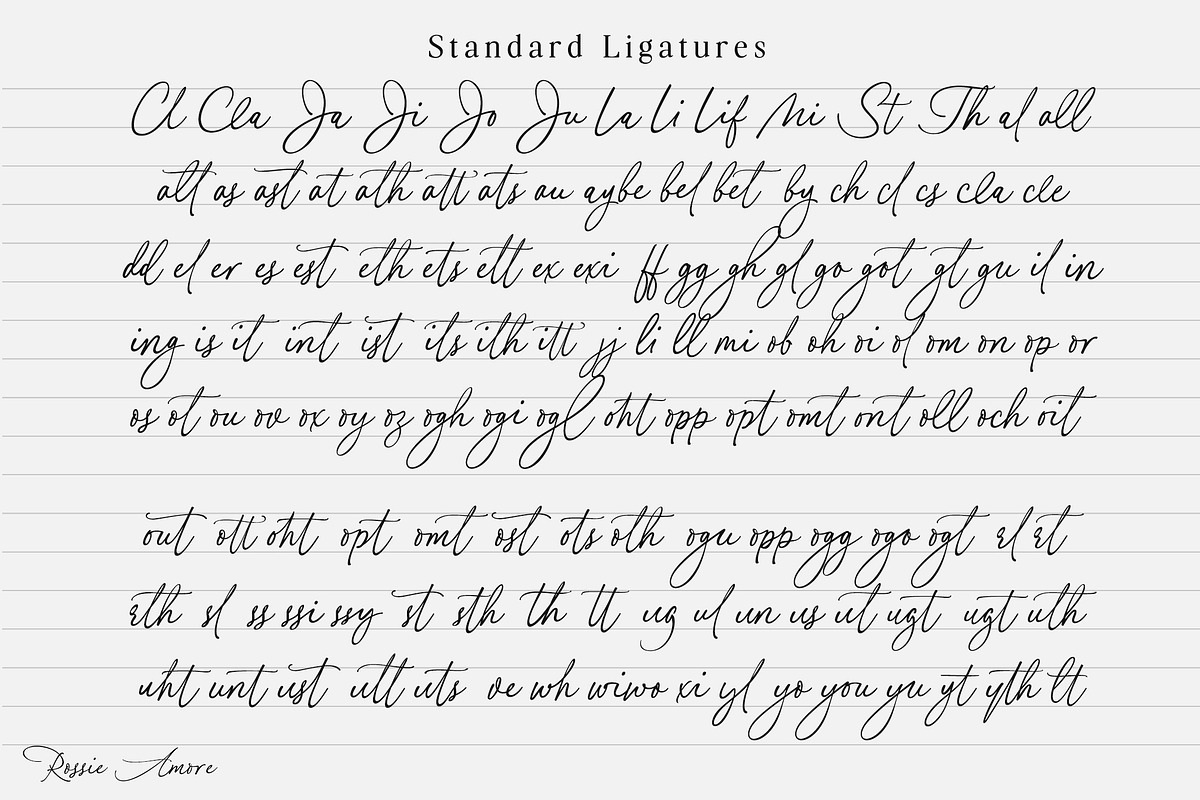 Standard Ligatures
Cl Cla Ja Ji Jo Ju La Li Lif Mi St Th al all
alt as ast at ath att ats au aybe bel bet by ch cl cs cla cle
dd el er es est eth ets ett ex exi ff gg gh gl go got gt gu il in
ing is it int ist its ith itt jj li ll mi ob oh oi ol om on op or
os ot ou ov ox oy oz ogh ogi ogl oht opp opt omt ont oll och oit
out ott oht opt omt ost ots oth ogu opp ogg ogo ogt rl rt
rth sl ss ssi ssy st sth th tt ug ul un us ut ugt ugt uth
uht unt ust utt uts ve wh wiwo xi yl yo you yu yt yth lt
Rossie Amore